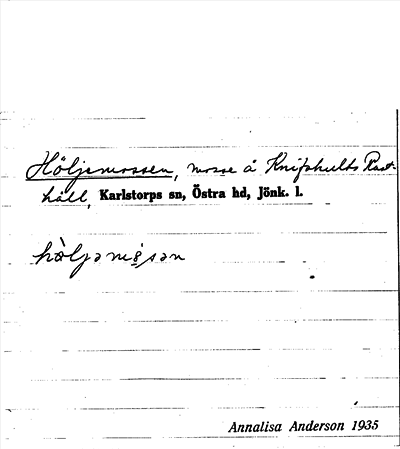 Höljemossen, mosse å Knifshults Rast-
häll, Karlstorps sn, Östra hd, Jönk. l.
hòljəmɔ̀sən
Annalisa Anderson 1935